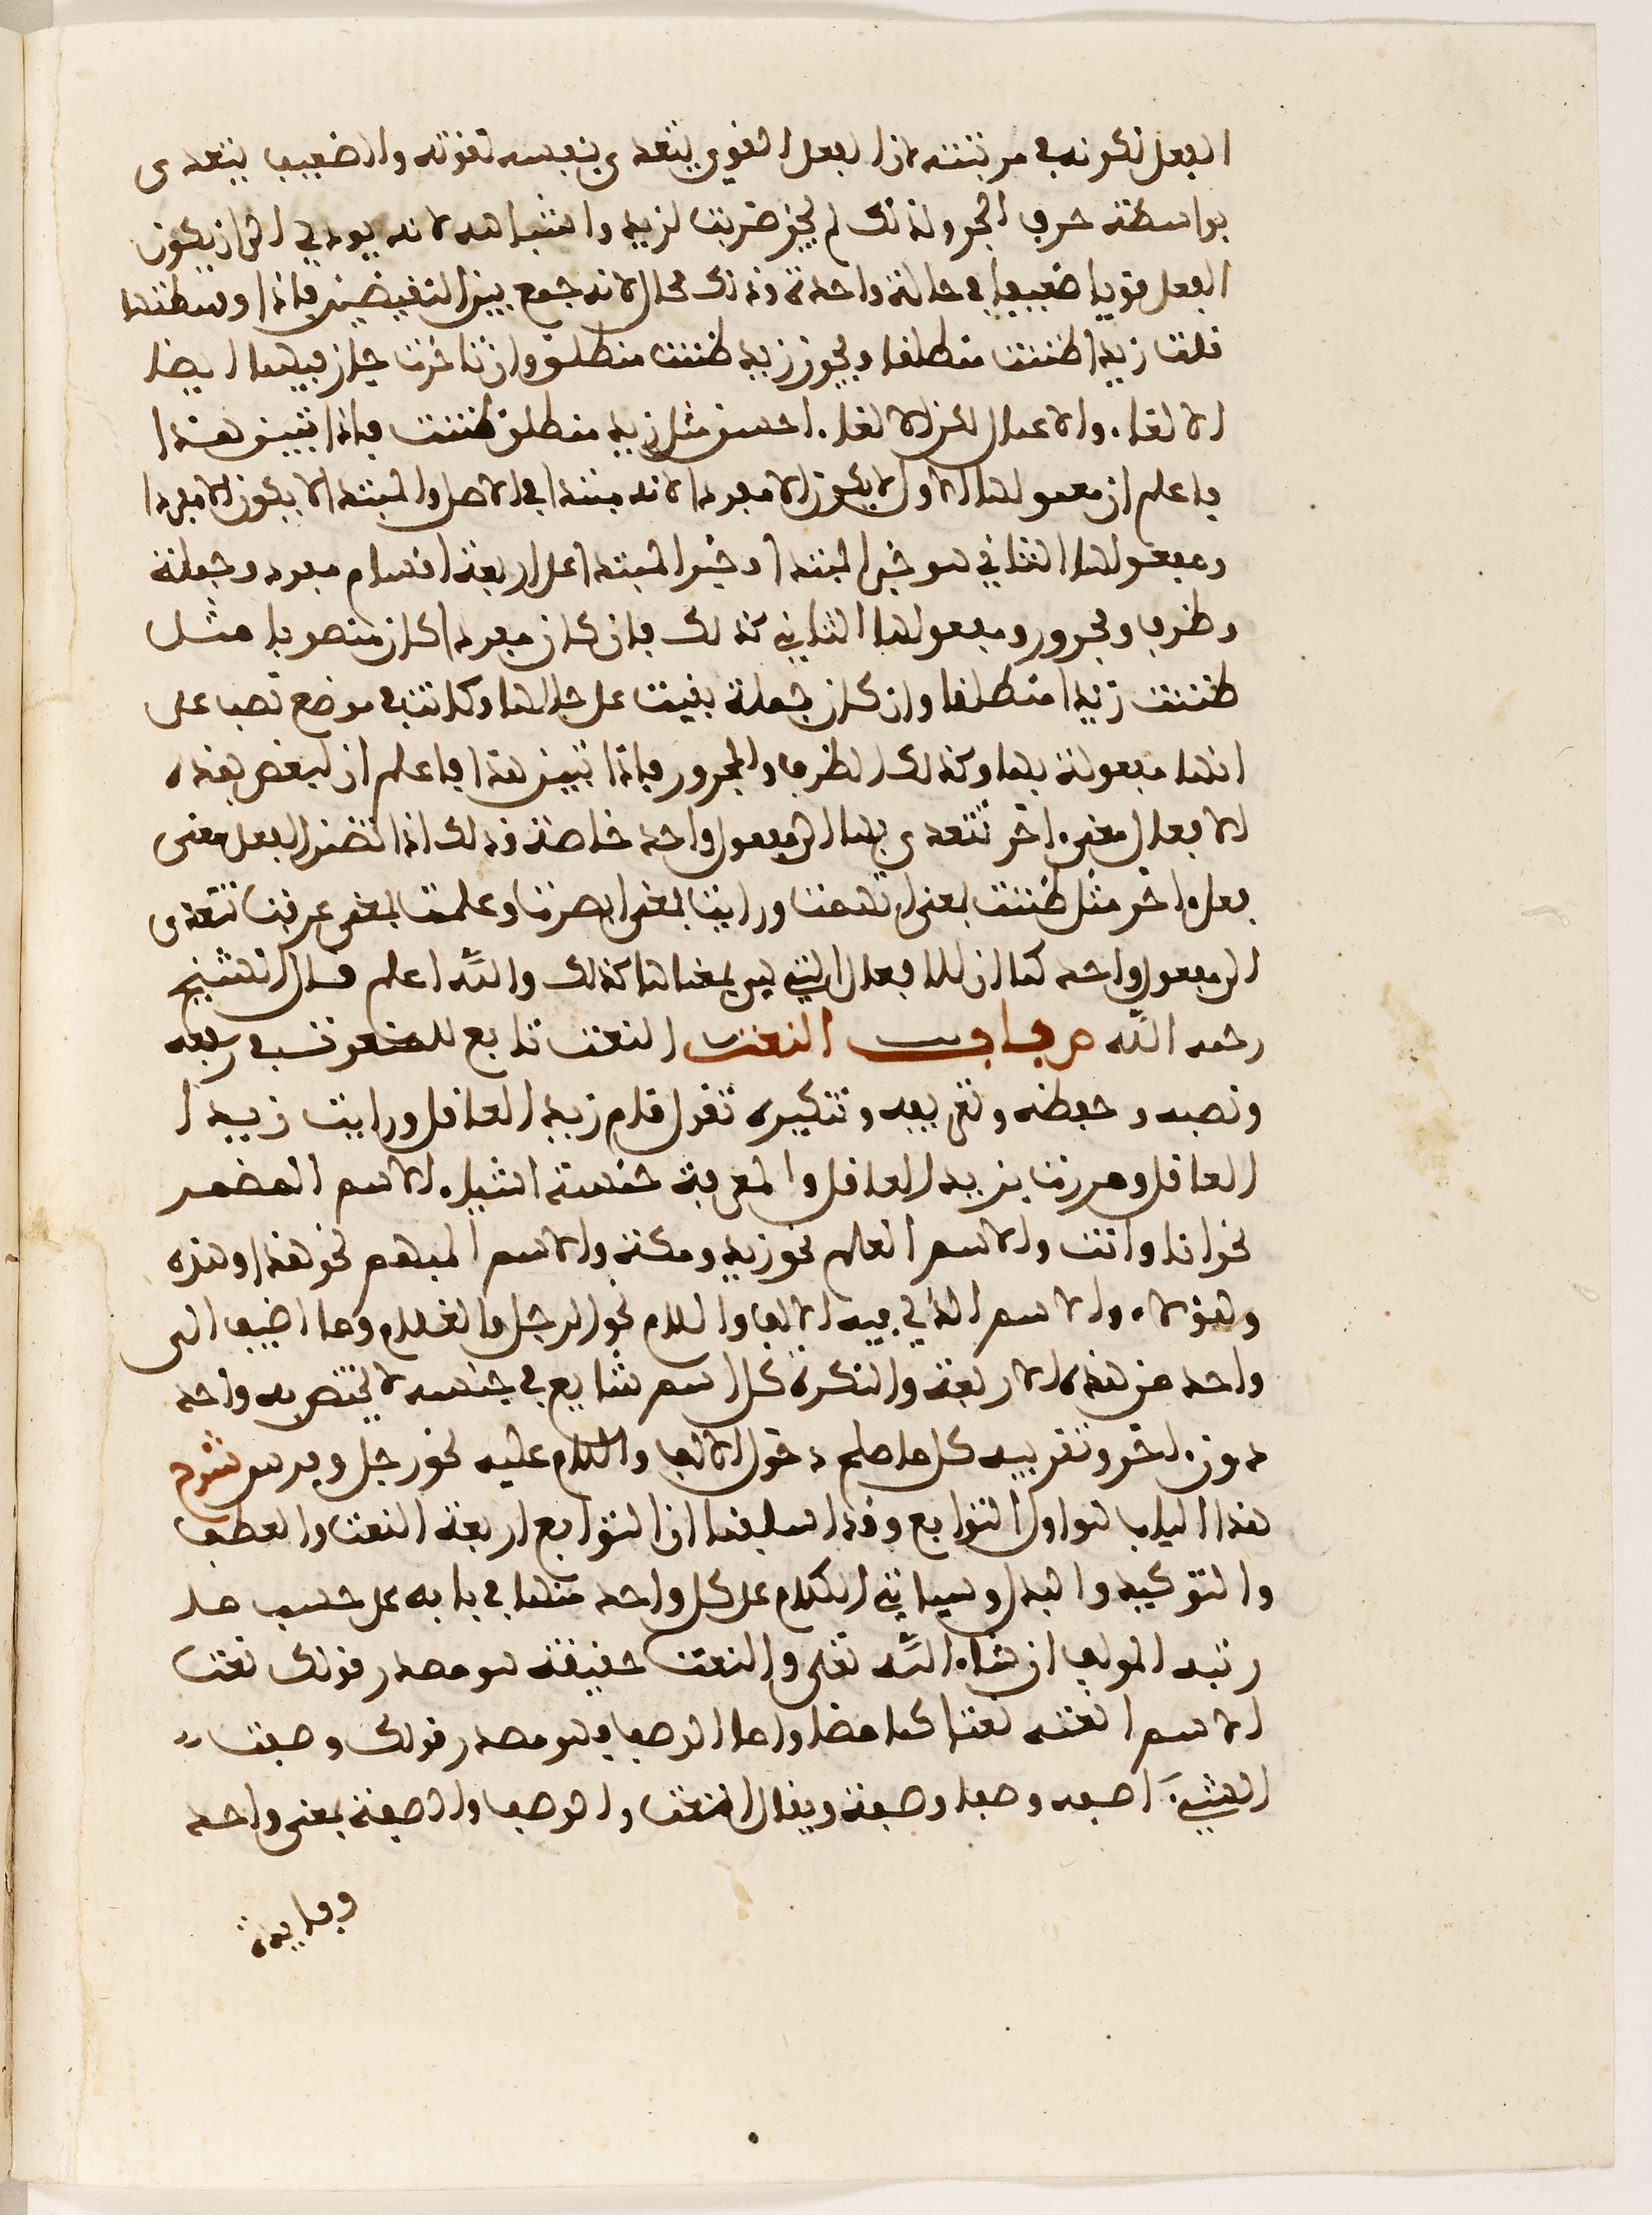 الفعل لكونه في مرتبته لان الفعل القوي يتعدى بنفسه لقوته والضعيف يتعدى
بواسطة حرف الجر ولذلك لم يجز ضربت لزيد واشباهه لانه يودي الى ان يكون
الفعل قويا ضعيفا في حالة واحدة وذلك محال لانه جمع بين النقيضين فاذا وسطتها
قلت زيدا ظننت منطلقا ويجوز زيد ظننت منطلق وان تاخرت جاز فيها ايضا
الالغاء والاعمال لكن الالغاء احسن مثل زيد منطلق ظننت فاذا تبين هذا
فاعلم ان معمولها الاول لا يكون الا مفردا لانه مبتدا في الاصل والمبتدا لا يكون الا مفردا
ومفعولها الثاني هو خبر المبتدا وخبر المبتدا على اربعة اقسام مفرد وجملة
وظرف ومجرور ومفعولها الثاني كذلك فان كان مفردا كان منصوبا مثل
ظننت زيدا منطلقا وان كان جملة بقيت على حالها وكانت في موضع نصب على
انها مفعولة بها وكذلك الظرف والمجرور فاذا تبين هذا فاعلم ان لبعض هذه
الافعال معنى اخر تتعدى بها الى مفعول واحد خاصة وذلك اذا تضمن الفعل معنى
فعل اخر مثل ظننت بمعنى اتهمت ورايت بمعنى ابصرت وعلمت بمعنى عرفت تتعدى
الى مفعول واحد كما ان للافعال التي بمعناها كذلك والله اعلم قال الشيخ
رحمه الله ص باب النعت النعت تابع للمنعوت في رفعه
ونصبه وخفضه وتعريفه وتنكيره تقول قام زيد العاقل ورايت زيدا
العاقل ومررت بزيد العاقل والمعرفة خمسة اشياء الاسم المضمر
نحو انا وانت والاسم العلم نحو زيد ومكة والاسم المبهم نحو هذا وهذه
وهؤلاء والاسم الذي فيه الالف واللام نحو الرجل والغلام وما اضيف الى
واحد من هذه الاربعة والنكرة كل اسم شايع في جنسه لا يختص به واحد
دون اخر وتقريبه كل ما صلح دخول الالف واللام عليه نحو رجل وفرس ش
هذا الباب هو اول التوابع وقد اسلفنا ان التوابع اربعة النعت والعطف
والتوكيد والبدل وسياتي الكلام على كل واحد منها في بابه على حسب ما
رتبه المولف ان شاء الله تعلى والنعت حقيقة هو مصدر قولك نعت
الاسم انعته نعتا كما مضا واما الوصف فهو مصدر قولك وصفت
الشيء اصفه وصفا وصفة ويقال النعت والوصف والصفة بمعنى واحد
وفايدة